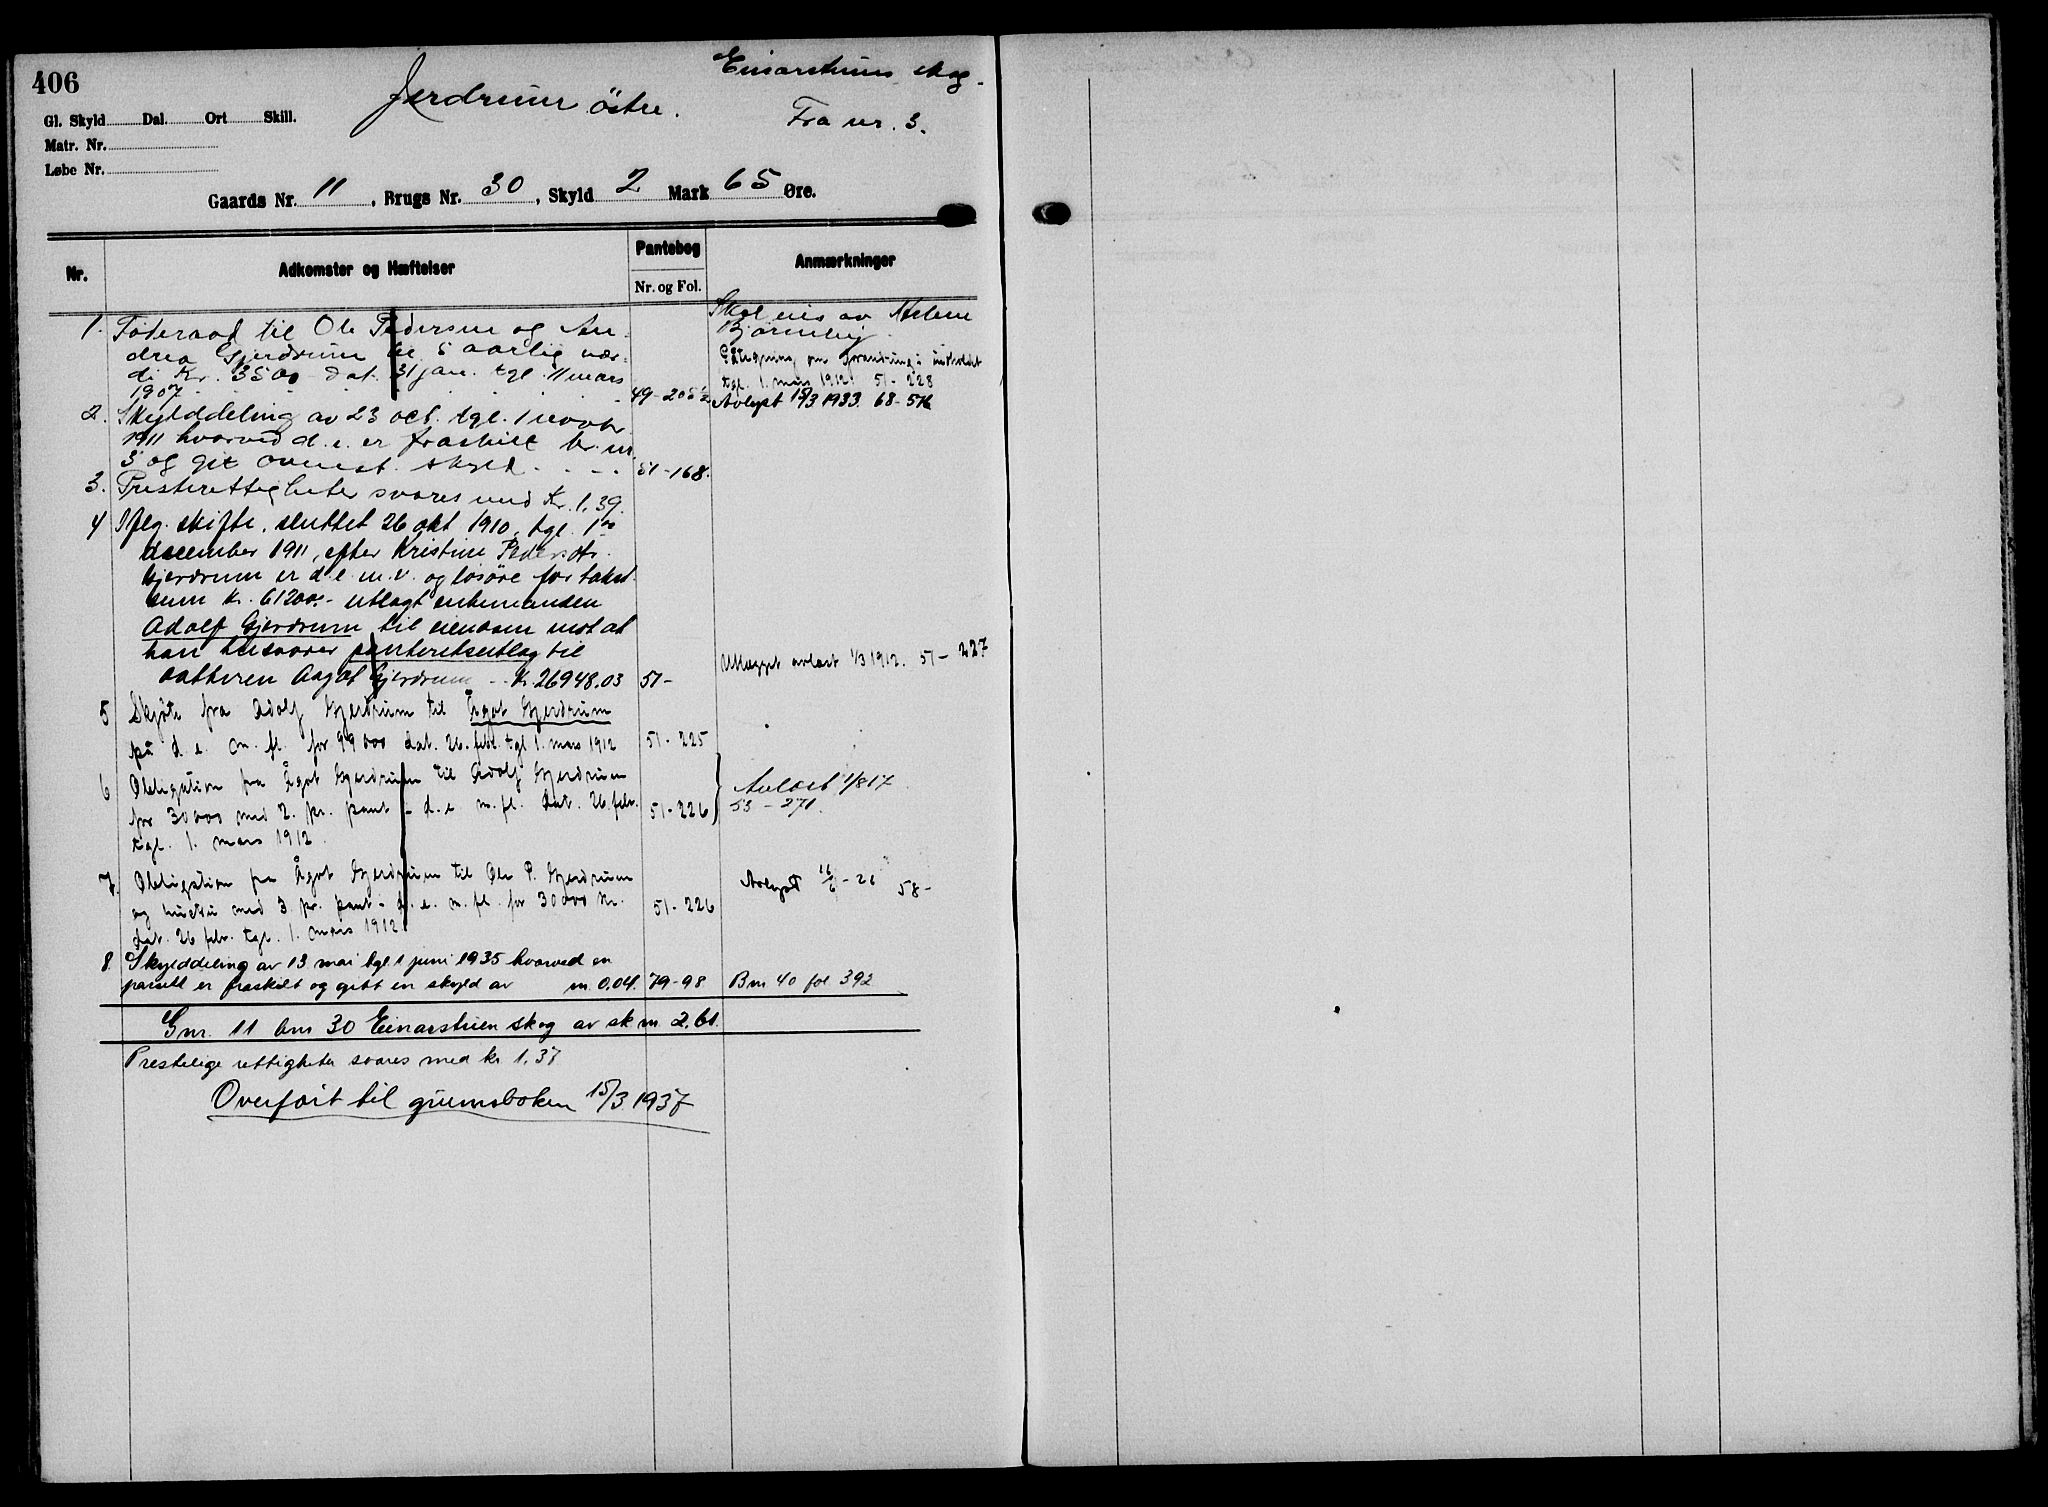 406
Gjerdrum östre.
Einarstuens skog.
Fra nr. 3.
Gl. Skyld Dal. Ort Skill.
Matr. Nr.
Løbe Nr.
Gaards Nr. 11, Brugs Nr. 30, Skyld 2 Mark 65 Øre.
Nr. Adkomster og Hæftelser Pantebog Anmærkninger
Nr. og Fol.
Skal eies av
1. Föderaad til Ole Pedersen og An-
drea Gjerdrum af 5 aarlig vær-
di Kr. 3500 dat. 31 jan. tgl. 11 mars
1907. 49-205½
Påtegning om forandring i indholdet
tgl. 1. mars 1912. 51-228
Avlyst 15/3 1933. 68-516
2. Skylddeling av 23 oct. tgl. 1 novbr.
1911 hvorved d. e. er fraskilt br. nr.
3 og git ovenst. skyld. 51-168.
3. Presterettigheter svares med Kr. 1,39.
4 Ifлg. skifte, sluttet 26 okt 1910, tgl. 1ste
december 1911, efter Kristine Pedersdtr.
Gjerdrum er d. e. m. v. og løsöre for takst-
sum Kr. 61200.- utlagt enkemanden
Adolf Gjerdrum til eiendom mot at
han tilsvarer panteretsutlæg til
datteren Aagot Gjerdrum - Kr. 26948.03 51-
Utlægget avlæst 1/3 1912. 51-227
5 Skjöte fra Adolf Gjerdrum til Ågot Gjerdrum
på d. e. m. fl. for 99000 dat. 26. febr. tgl 1. mars 1912 51-225
6 Obligation fra Ågot Gjerdrum til Adolf Gjerdrum
for 30000 med 2. pr. pant i d. e. m. fl. Dat. 26. febr. 51-226
tgl. 1. mars 1912.
Avlæst 1/8 17
53-271.
7. Obligation fra Ågot Gjerdrum til Ole P. Gjerdrum
og hustru med 3. pr. pant i d. e. m. fl. for 30000 Kr. 51-226
dat. 26 febr. tgl. 1. mars 1912
Avlyst 16/6-26 58-
8. Skylddeling av 13 mai tgl. 1 juni 1935 hvorved en
parsell er fraskilt og gitt en skyld av m. 0.04. 79-98 Bnr 40 fol 392
Gnr. 11 bnr 30 Einarstuen skog av sk m. 2.61.
Prestelige rettigheter svares med kr 1.37
Overført til grunnboken 15/3 1937